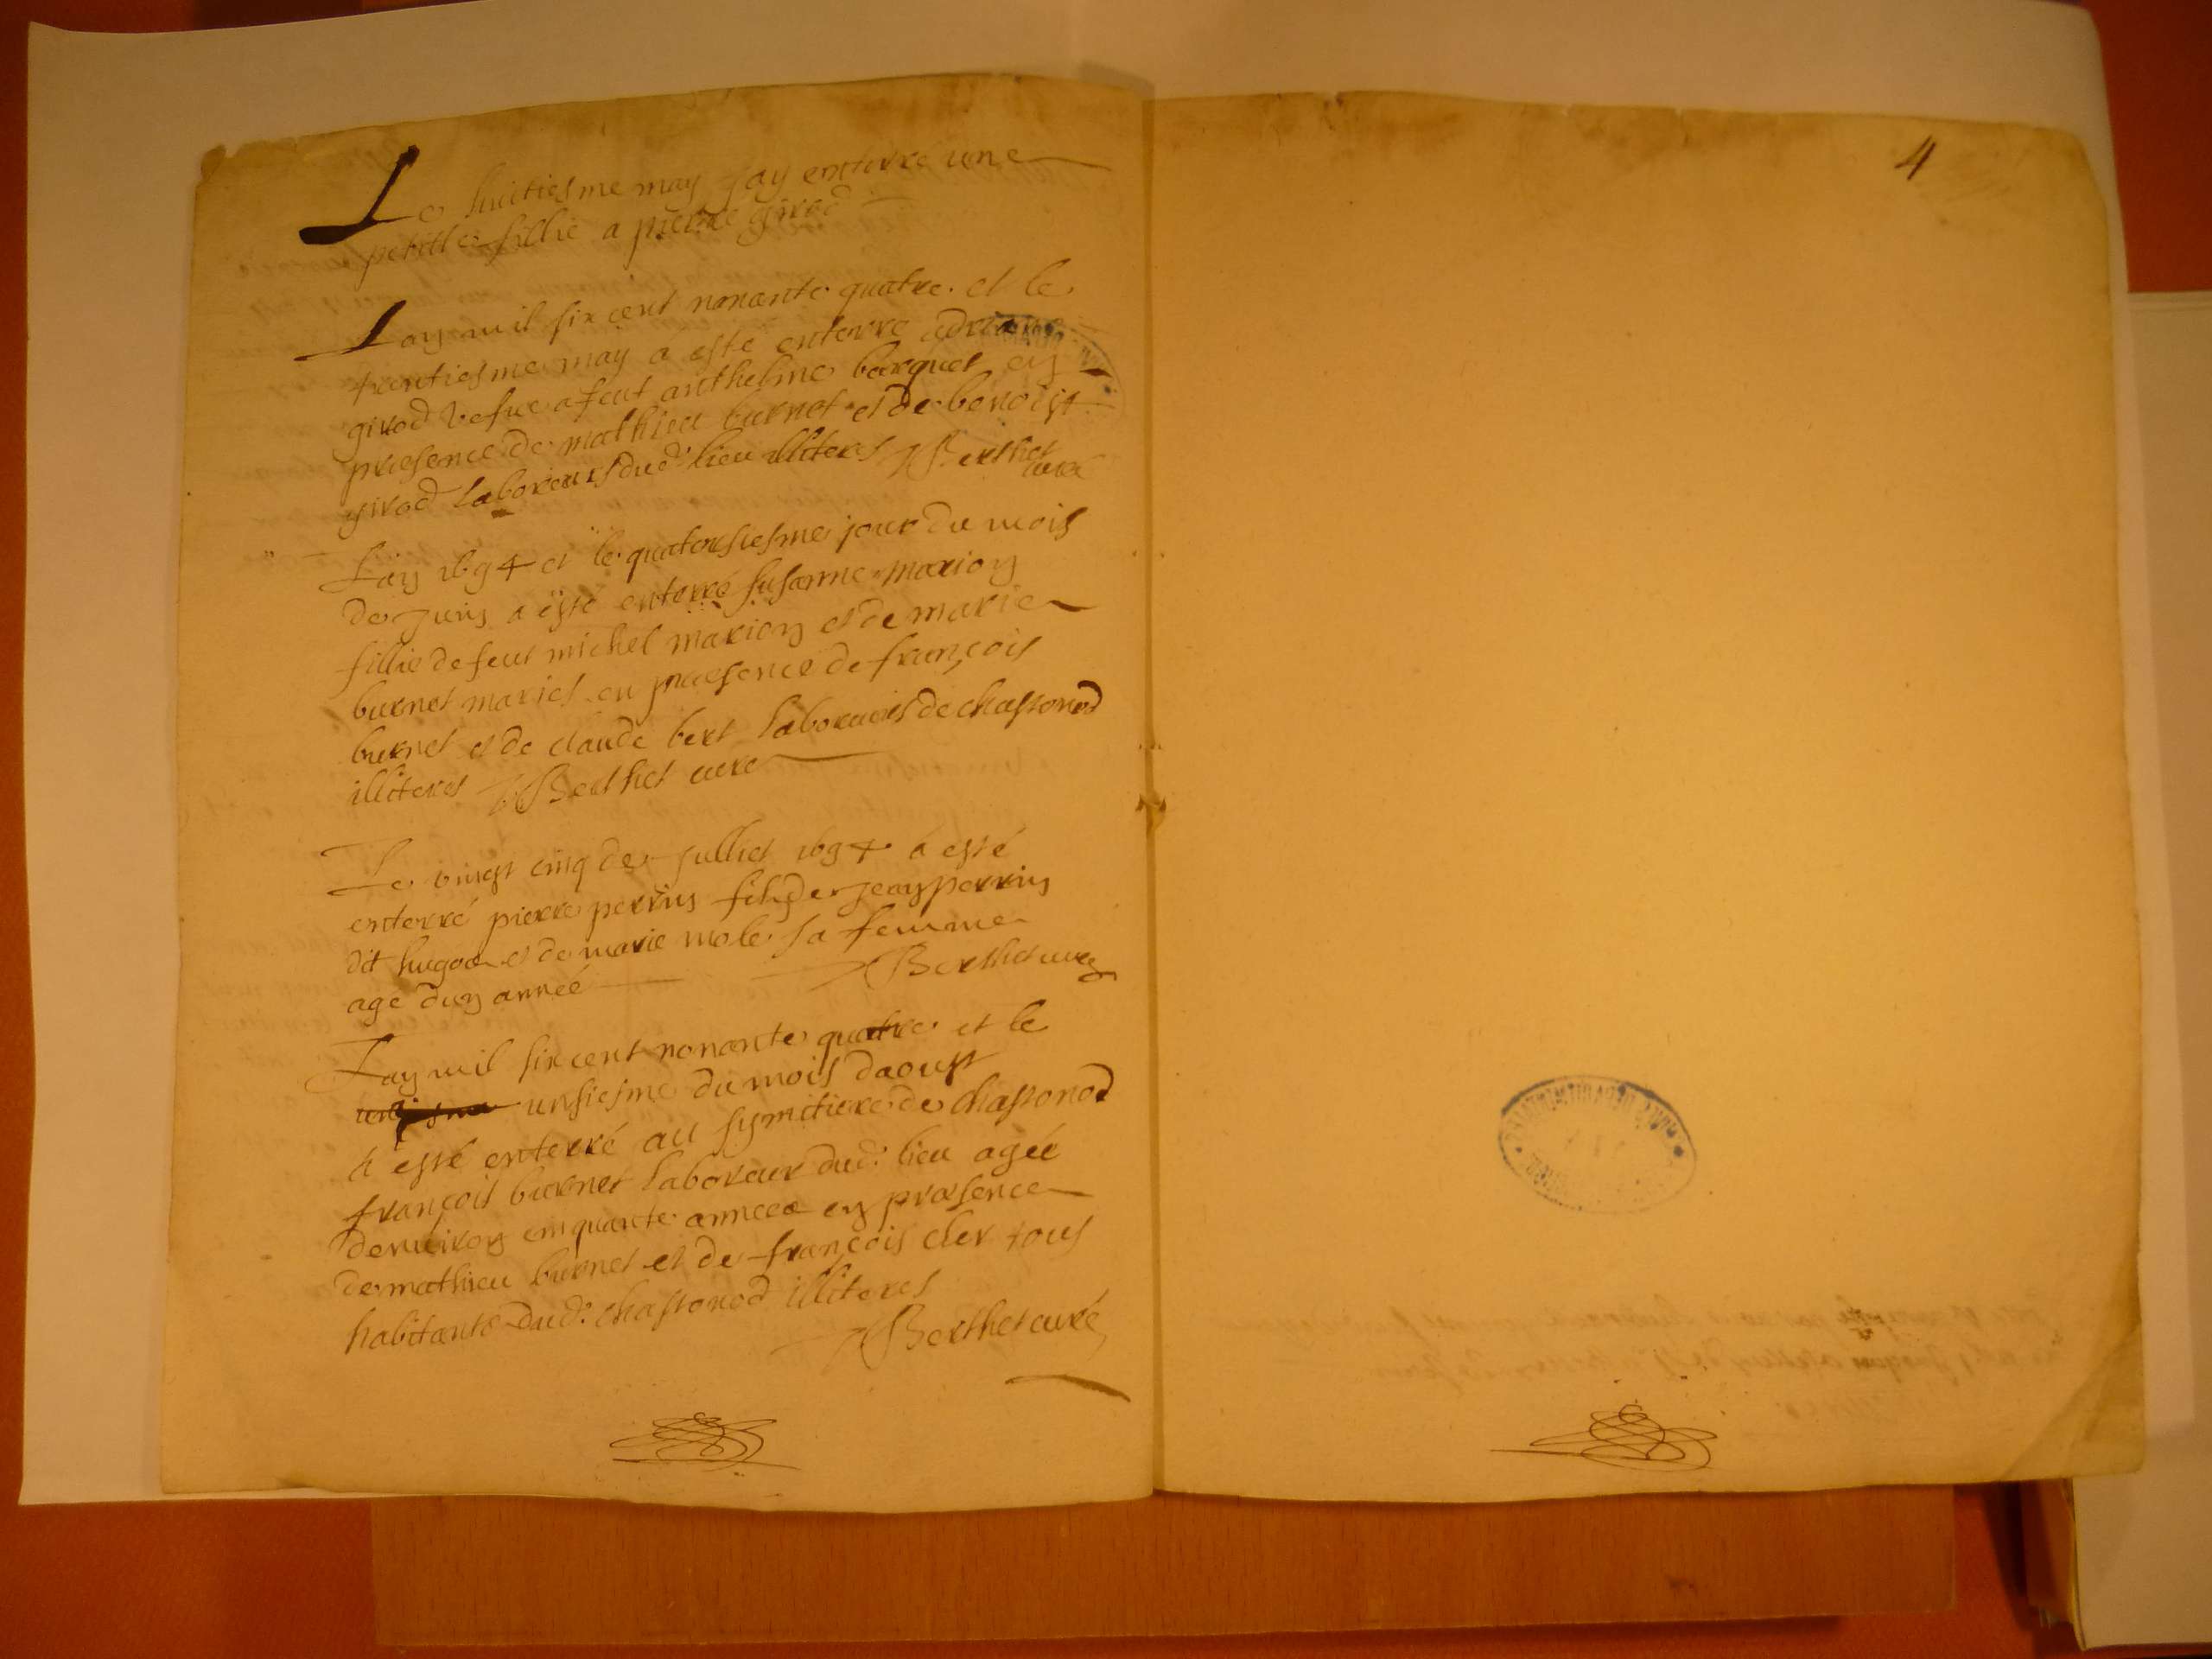 Le huictiesme may jay enterré une
petitte fillie a pierre girod
Lan mil six cent nonante quatre et le
trentiesme may a esté enterré adriane
girod vefve a feut anthelme borquet en
praesence de mathieu burnet et de benoist
girod laboreurs dud. lieu illiteres Berthet
curé
Lan 1694 et le quatorsiesme jour du mois
de Juin a esté enterré susanne marion
fillie de feut michel marion et de marie
burnet mariés en praesence de françois
burnet et de claude bert laboreurs de chastonod
illiteres Berthet curé
Le vingt cinq de Julliet 1694 a esté
enterré pierre perrin fils de Jean perrin
dit hugon et de marie mole sa femme
agé dun année Berthet curé
Lan mil six cent nonante quatre et le
unsiesme du mois daoust
a esté enterré au symitiere de chastonod
françois burnet laboreur dud. lieu agée
denviron cinquante annees en praesence
de mathieu burnet et de françois cler tous
habitants dud. chastonod illiteres
Berthet curé
4